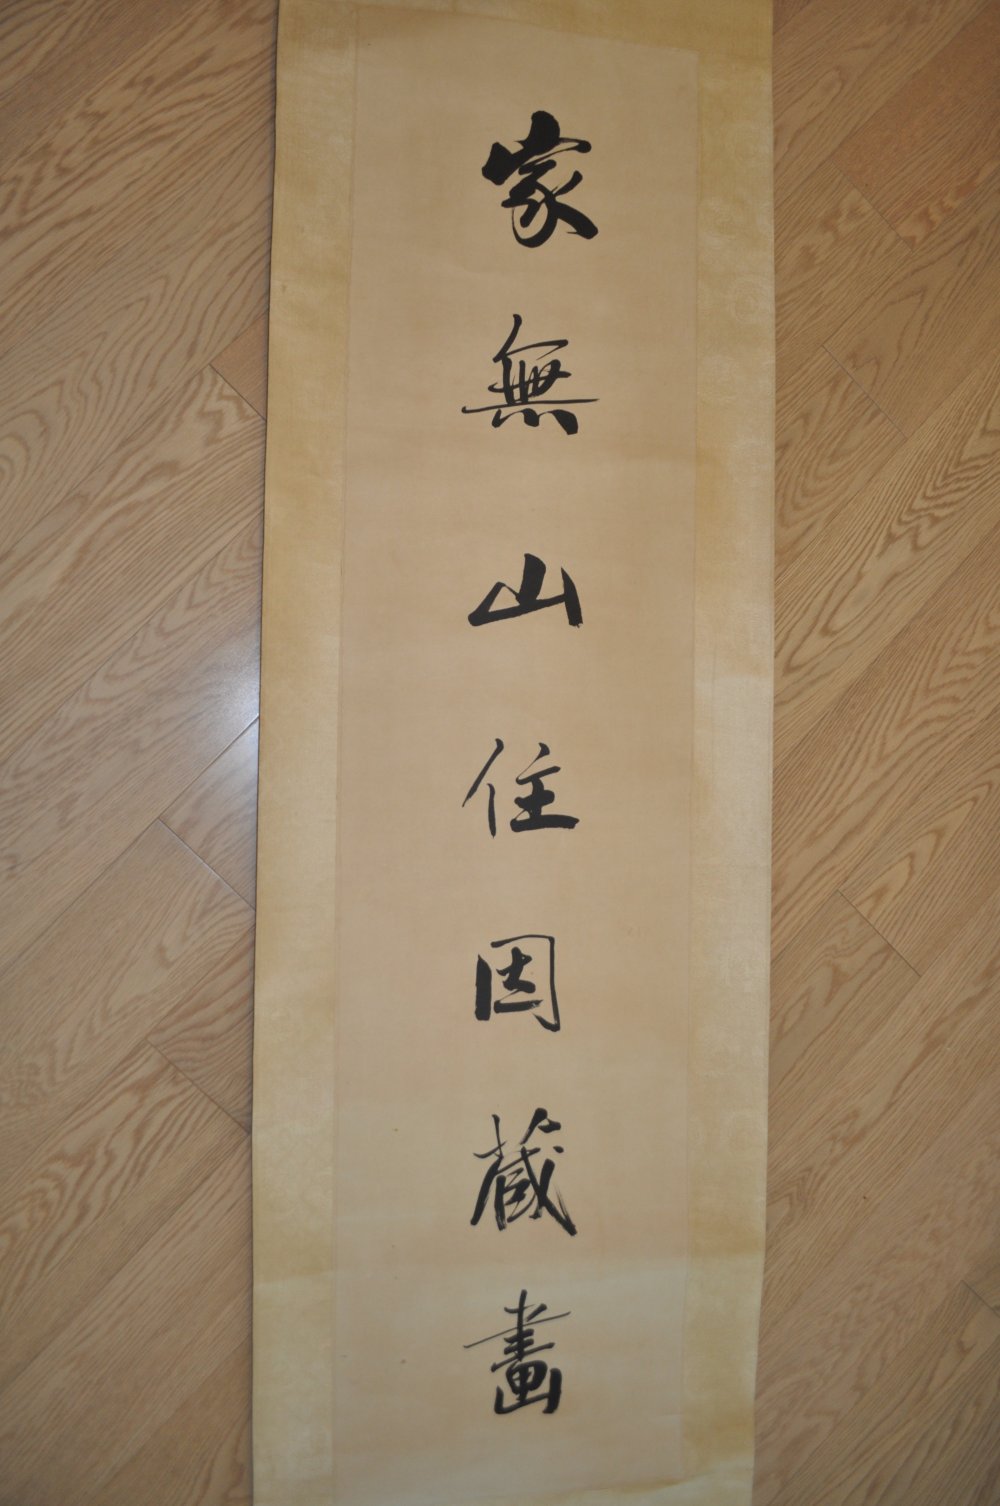 家無山住因蔵畫